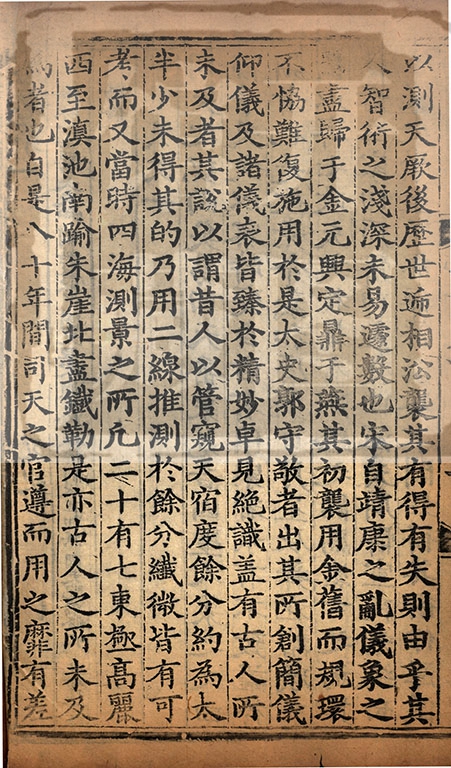 以測天厥後歴世逓相沿襲其有得有失則由乎其
人智術之淺深未易遽數也宋自靖康之亂儀象之
盡歸于金元興定鼎于燕其初襲用金舊而規環
不恊難復施用於是太史郭守敬者出其所創簡儀
仰儀及諸儀表皆臻於精妙卓見絶識盖有古人所
未及者其説以謂昔人以管窺天宿度餘分約為太
半少未得其的乃用二線推測於餘分纖微皆有可
考而又當時四海測景之所凢二十有七東極髙麗
西至滇池南踰朱崖北盡鐵勒是亦古人之所未及
為者也自是八十年間司天之官遵而用之靡有差